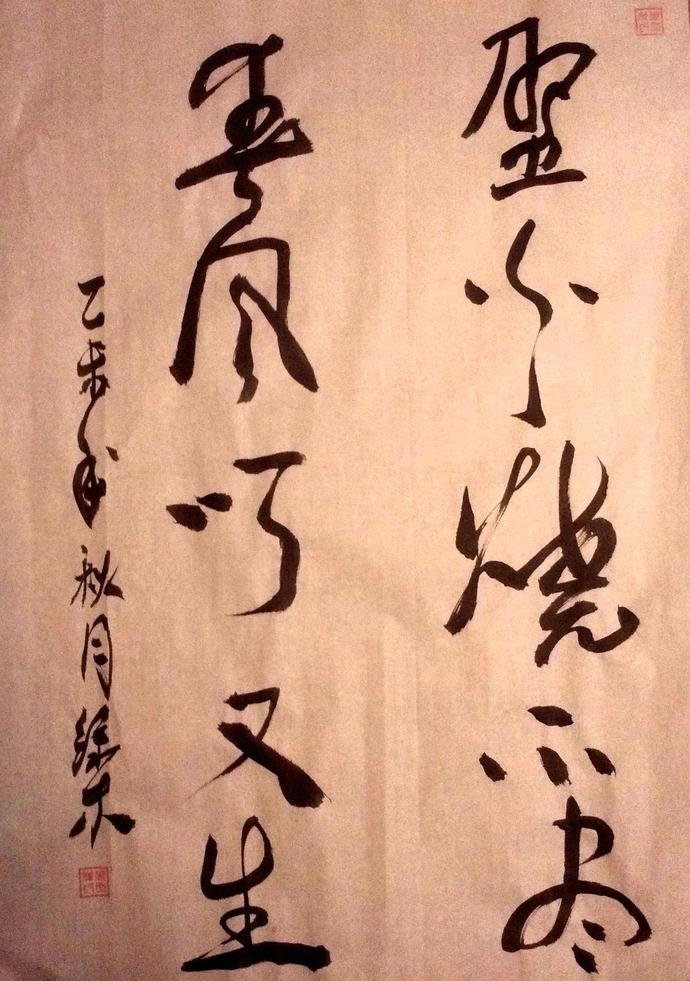 野火烧不尽
春风吹又生
乙未年秋月